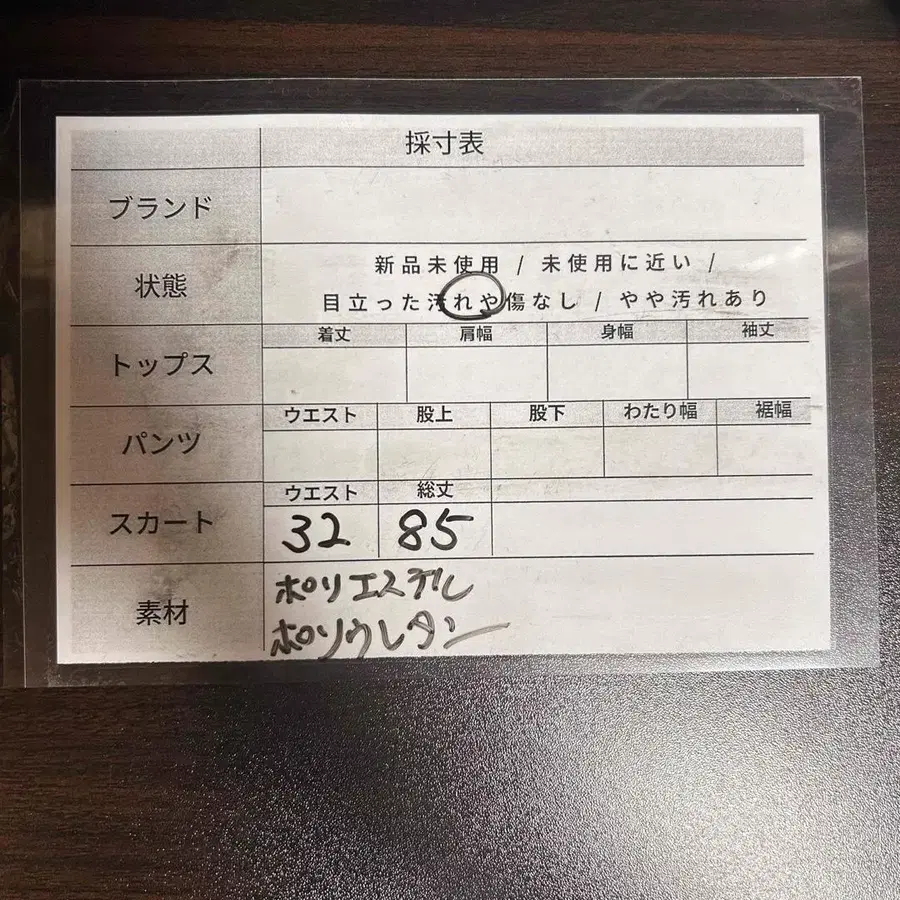 採寸表
ブランド
状態
新品未使用 / 未使用に近い /
目立った汚れや傷なし / やや汚れあり
トップス
着丈 肩幅 身幅 袖丈
パンツ
ウエスト 股上 股下 わたり幅 裾幅
スカート
ウエスト 総丈
32 85
素材
ポリエステル
ポリウレタン